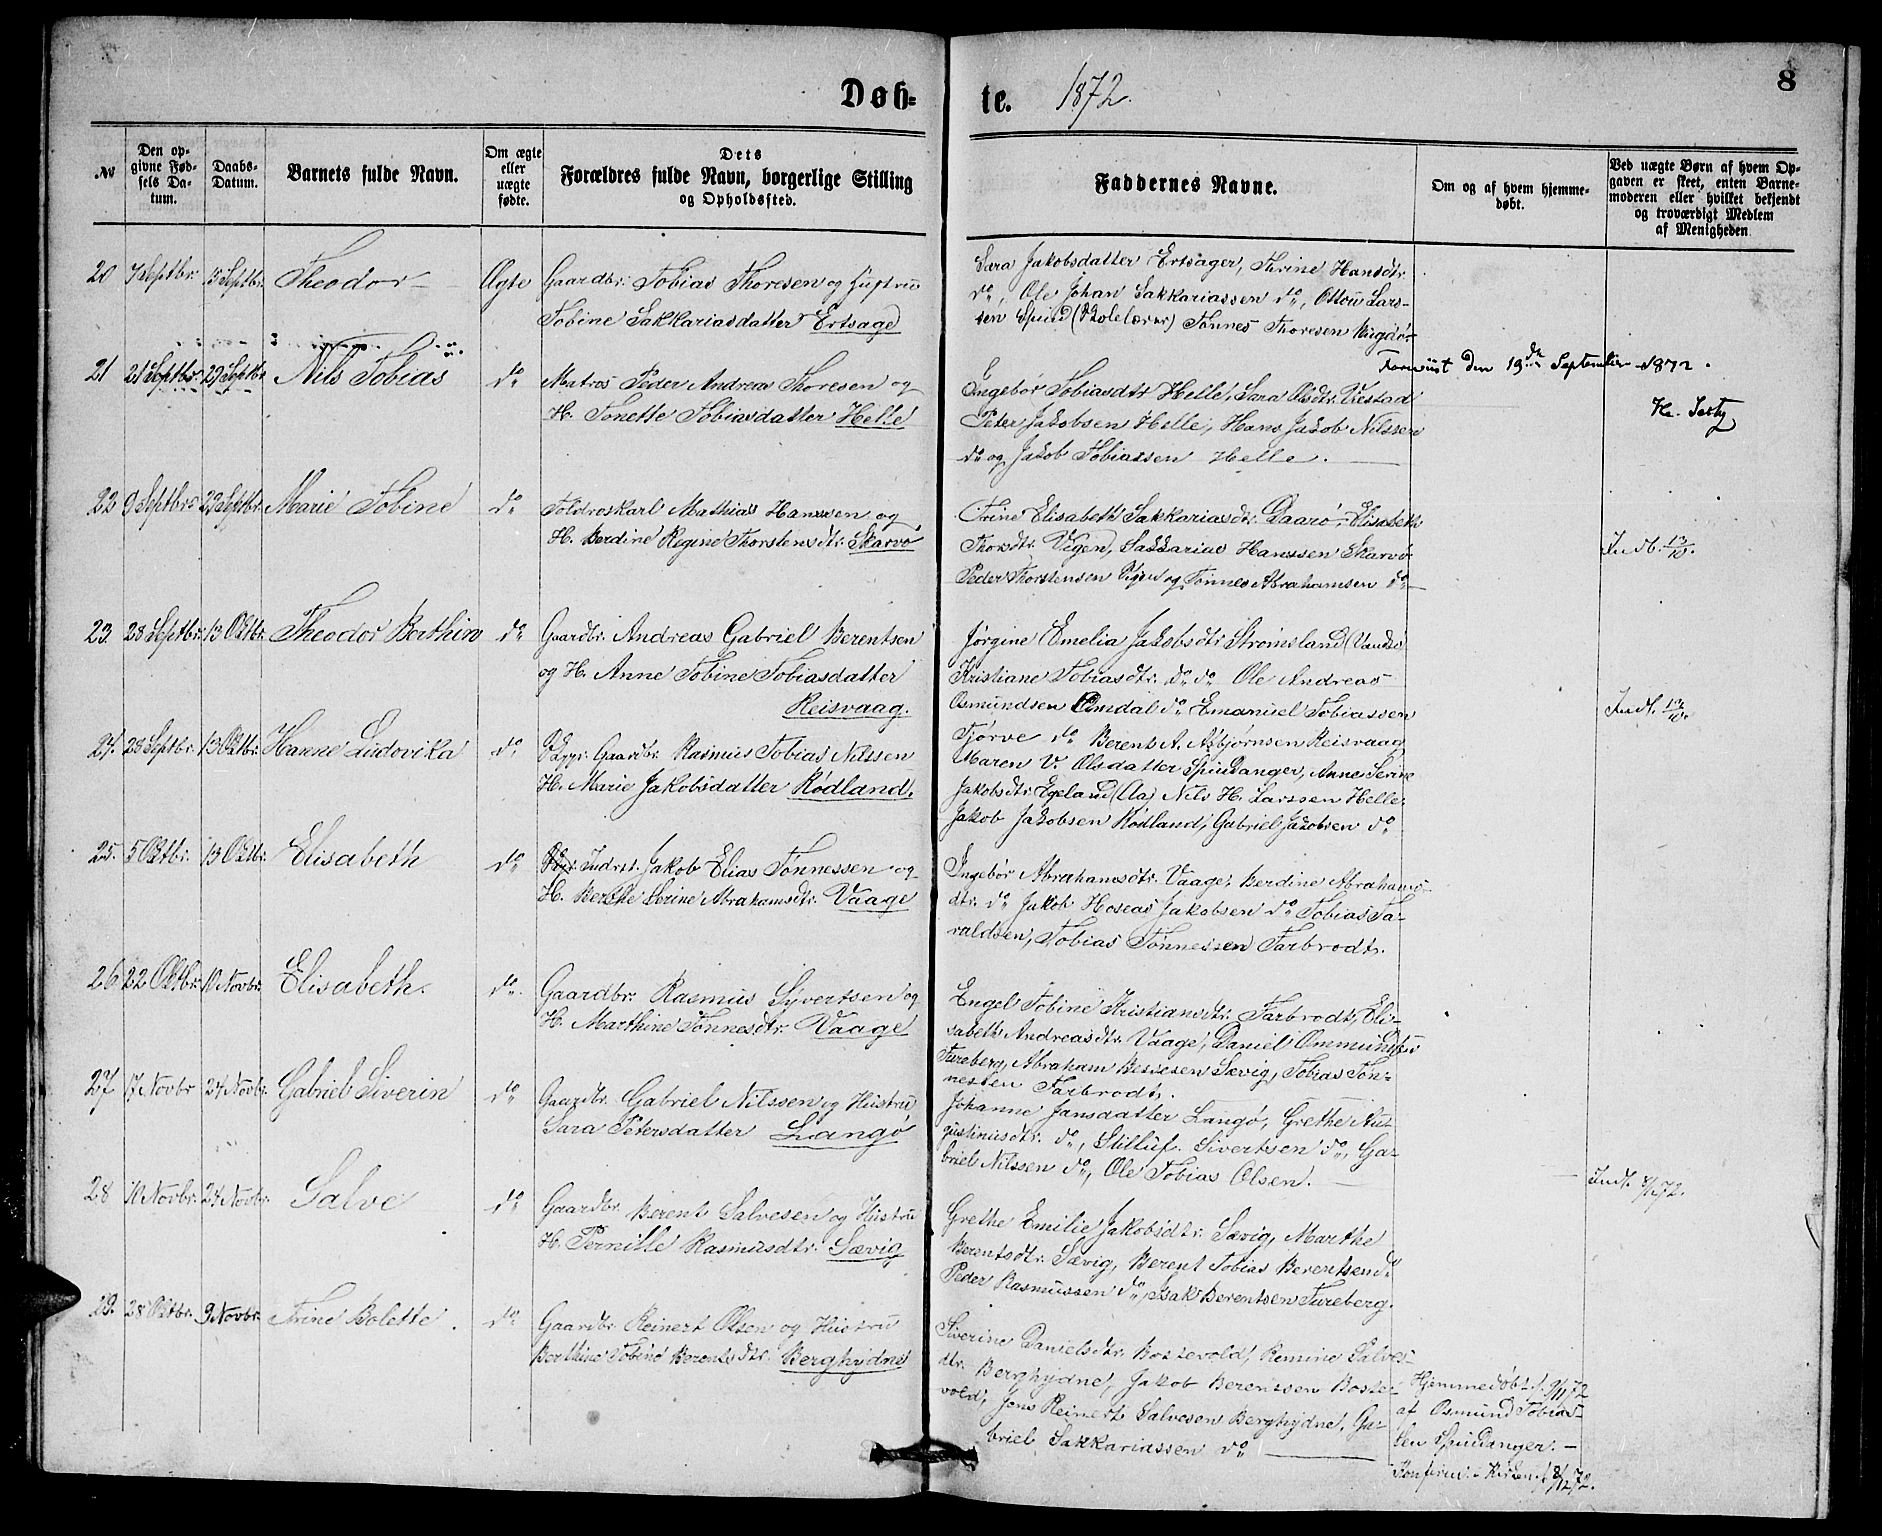 Døb=
te. 1872.
8
№
Den op-
givne Fød-
sels Da-
tum.
Daabs-
Datum.
Barnets fulde Navn.
Om ægte
eller
uægte
fødte.
Dets
Forældres fulde Navn, borgerlige Stilling
og Opholdssted.
Faddernes Navne.
Om og af hvem hjemme-
døbt.
Ved uægte Børn af hvem Op-
gaven er skeet, enten Barne-
moderen eller hvilket bekjendt
og troværdigt Medlem
af Menigheden.
20 7 Septbr. 15 Septbr. Theodor Ægte Gaardbr. Tobias Thoresen og Hustru
Tobine Sakkariasdatter Ertsage
Sara Jakobsdatter Ertsager, Thrine Hansdtr.
do, Ole Johan Sakkariassen do, Ottou Lars-
sen Spind (Skolelærer) Tønnes Thoresen
21 21 Septbr. 29 Septbr. Nils Tobias do Matros Peder Andreas Thoresen og
H. Tonette Tobiasdatter Helle
Forevist den 19de September 1872.
Ingebor Tobiasdtr Helle, Sara Olsdtr. Viestad
Peter Jakobsen Helle, Hans Jakob Nilssen
do og Jakob Tobiassen Helle.
22 9 Septbr. 29 Septbr. Marie Tobine do Toldroskarl Mathias Hanssen og
H. Berdine Regine Thorstensdtr. Skarvø
Trine Elisabeth Sakkariasdtr. Daarø, Elisabeth
Thorsdtr. Vigen, Sakkarias Hanssen Skarvø
Peder Thorstensen Vigen og Tønnes Abrahamsen do
Indb. 13/10.
23. 28 Septbr. 13 Oktbr. Theodor Berthin do Gaardbr. Andreas Gabriel Berentsen
og H. Anne Tobine Tobiasdatter
Reisvaag.
Jørgine Emelia Jakobsdtr. Strømsland (Vandse
Kristiane Tobiasdtr. do do Ole Andreas
Osmundsen Omdal do Emanuel Tobiassen
Tjørve do Berent A. Asbjørnsen Reisvaag
Indt. 13/10.
24. 23 Septbr. 13 Oktbr. Hanne Ludovika do Gaardbr. Rasmus Tobias Nilssen
H. Marie Jakobsdatter Rødland.
Maren V. Olsdatter Spindanger, Anne Serine
Jakobsdtr. Egeland (Aa) Nils H. Larssen Helle,
Jakob Jakobsen Rødland, Gabriel Jakobsen do
25. 5 Oktbr. 13 Oktbr. Elisabeth do Indrst. Jakob Elias Tønnessen og
H. Berthe Serine Abrahamsdtr. Vaage
Ingebor Abrahamsdtr. Vaage, Berdine Abrahams-
dtr. do Jakob Hoseas Jakobsen do Tobias Ta-
raldsen, Tobias Tønnessen Farbrodt.
26 22 Oktbr. 10 Novbr. Elisabeth. do Gaardbr. Rasmus Syvertsen og
H. Marthine Tønnesdtr. Vaage
Engel Tobine Kristiansdtr. Farbrodt, Eli-
sabeth Andreasdtr. Vaage, Daniel Ommundsen
Tureberg, Abraham Bessesen Sævig, Tobias Tøn-
nessen Farbrodt.
27 17 Novbr 24 Novbr. Gabriel Siverin do Gaardbr. Gabriel Nilssen og Hustru
Sara Petersdatter Langø
Johanne Jansdatter Langø, Grethe Au-
gustinusdtr. do, Stilluf Sivertsen do, Ga-
briel Nilssen do, Ole Tobias Olsen.
28 10 Novbr. 24 Novbr. Salve do Gaardbr. Berent Salvesen og Hustru
H. Pernille Rasmusdtr. Sævig
Grethe Emilie Jakobsdtr. Sævig, Marthe
Berentsdtr. Sævig, Berent Tobias Berentsen do
Peder Rasmussen do, Isak Berentsen Tureberg.
29. 28 Oktbr. 9 Novbr. Trine Bolette. do Gaardbr Reinert Olsen og Hustru
Berthine Tobine Berentsdtr. Berghydne
Siverine Danielsdtr. Bostevold, Remine Salves-
dtr. Berghydne, Jakob Berentsen Boste-
vold, Jens Reinert Salvesen Berghydne, Ga-
briel Sakkariassen do
Hjemmedøbt f. 9/11 72
af Osmund Tobias-
sen Spindanger.
Konfirm. i Kirken f 8/12 72.